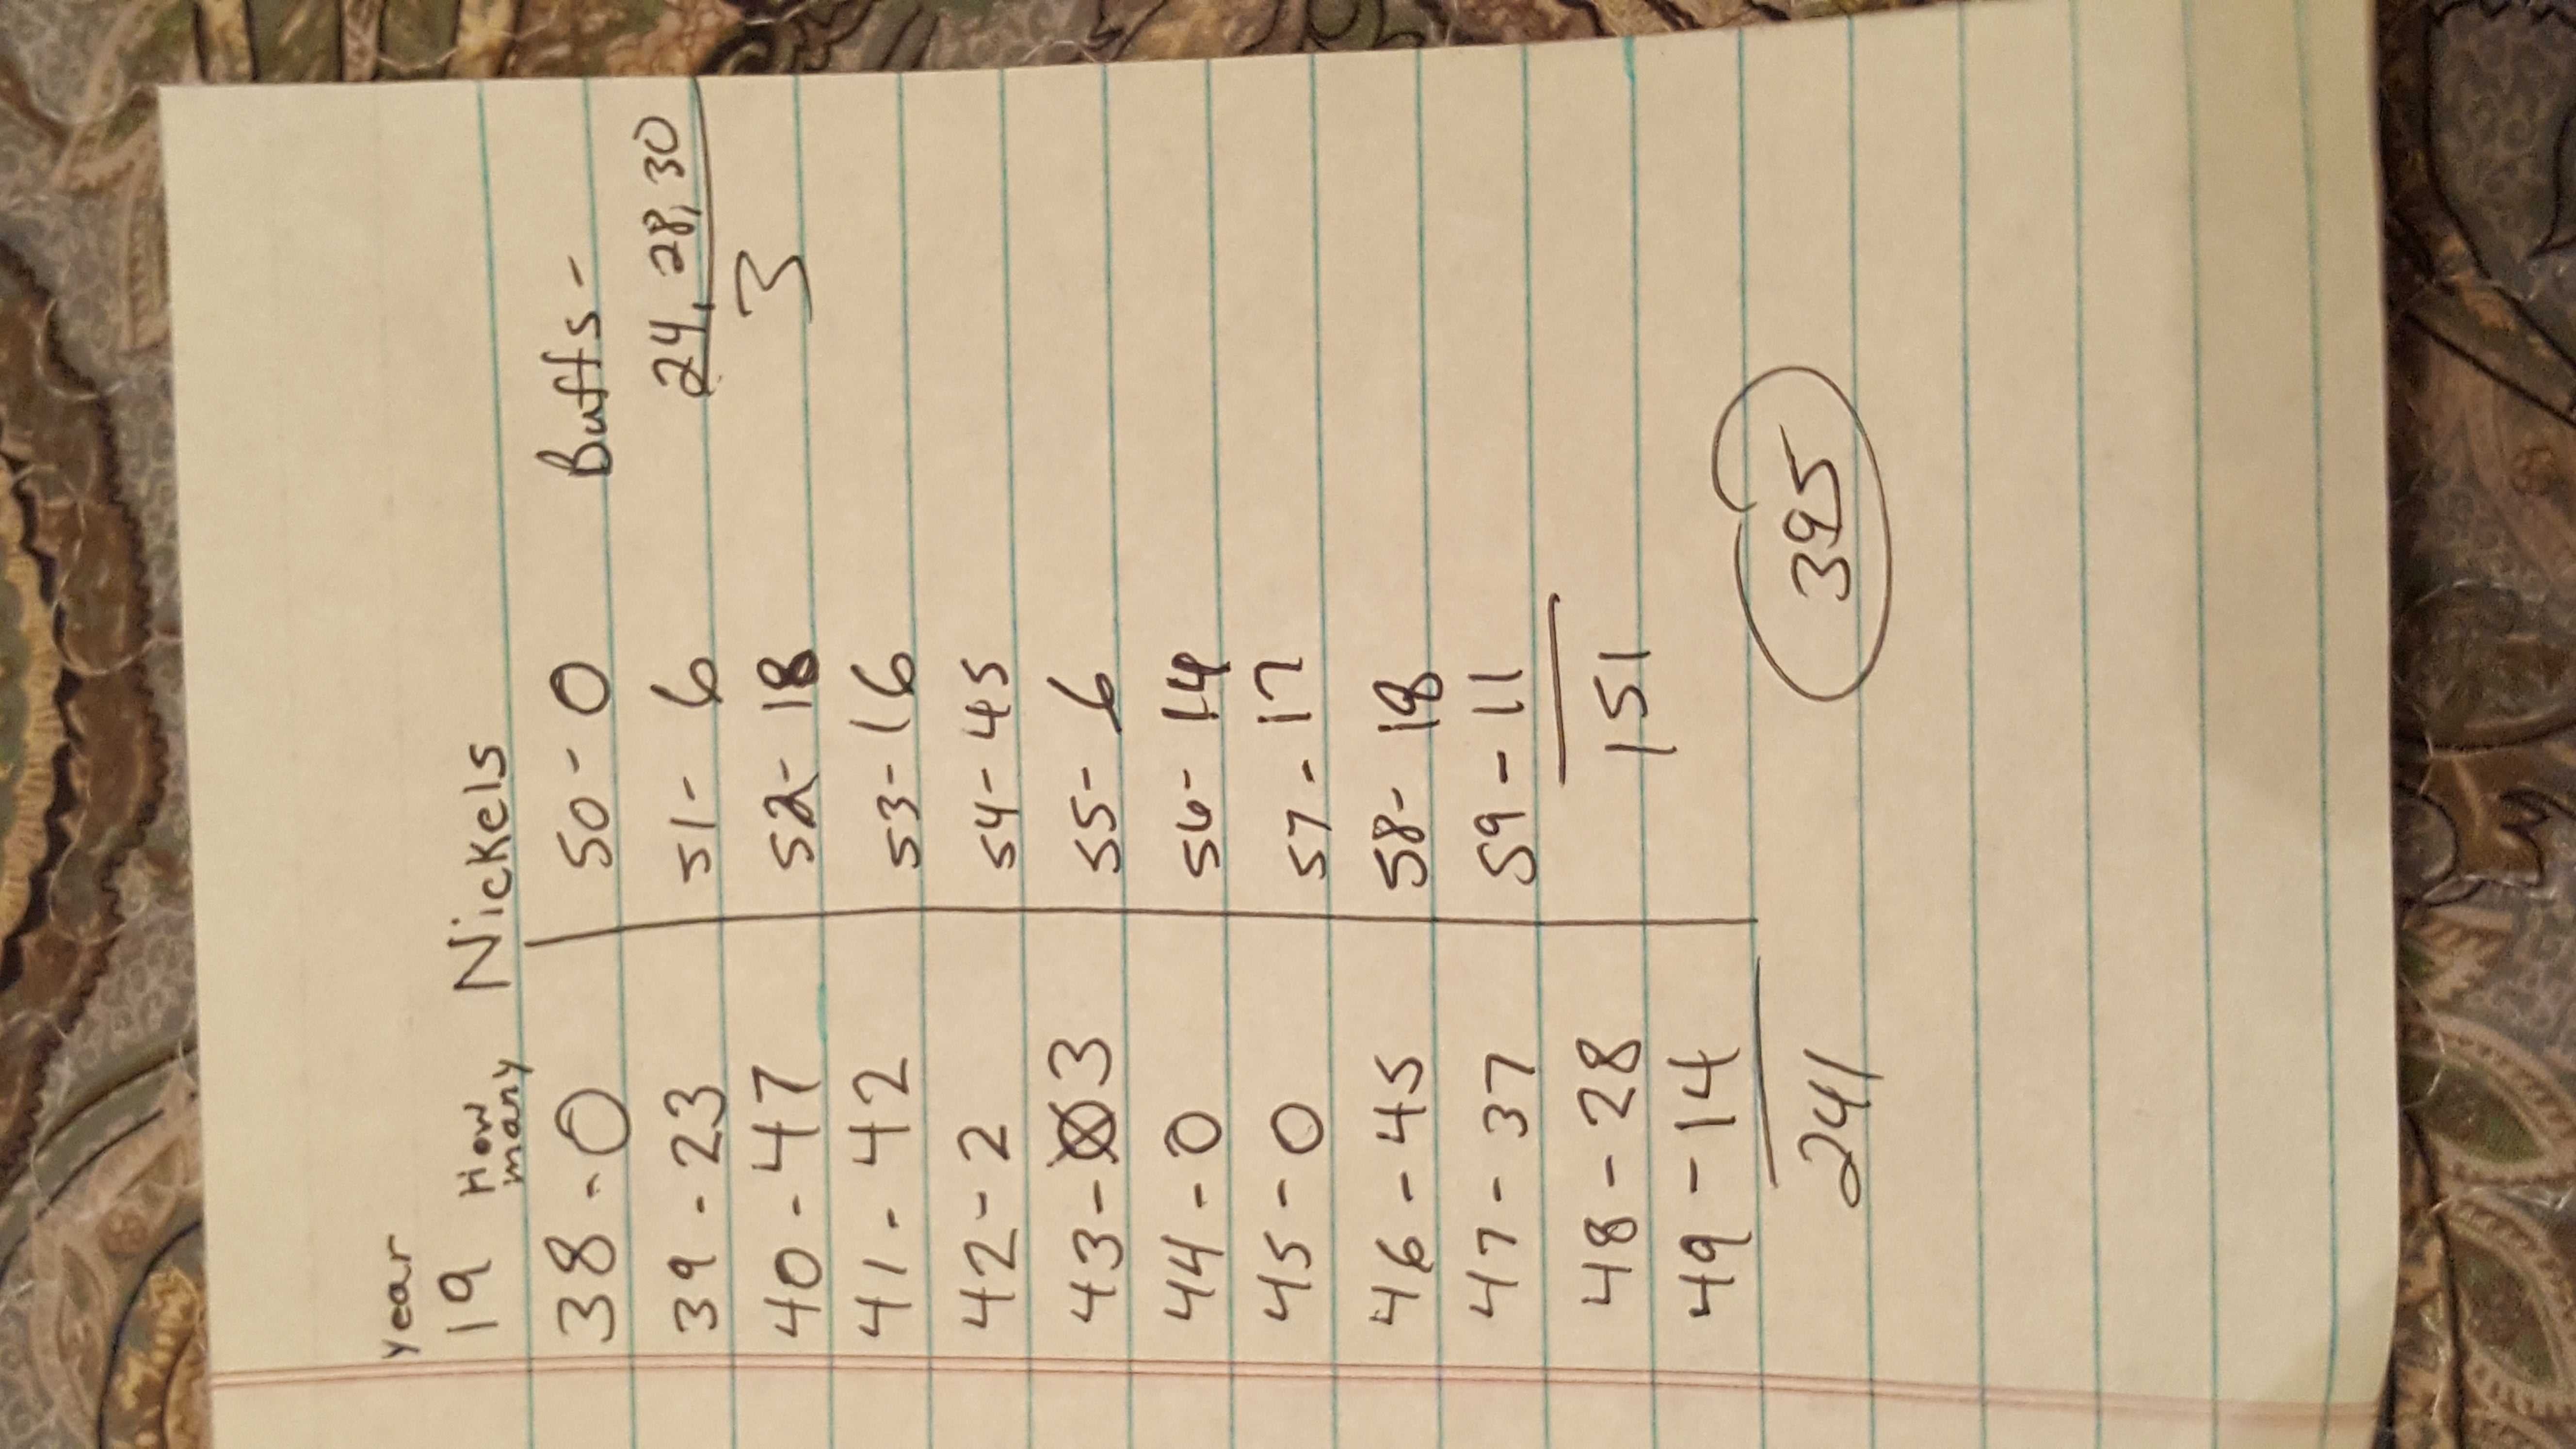 year
19 How many Nickels
38 - 0
39 - 23
40 - 47
41 - 42
42 - 2
43 - 3
44 - 0
45 - 0
46 - 45
47 - 37
48 - 28
49 - 14
241
50 - 0
51 - 6
52 - 18
53 - 16
54 - 45
55 - 6
56 - 14
57 - 17
58 - 18
59 - 11
151
Buffs -
24, 28, 30
3
395